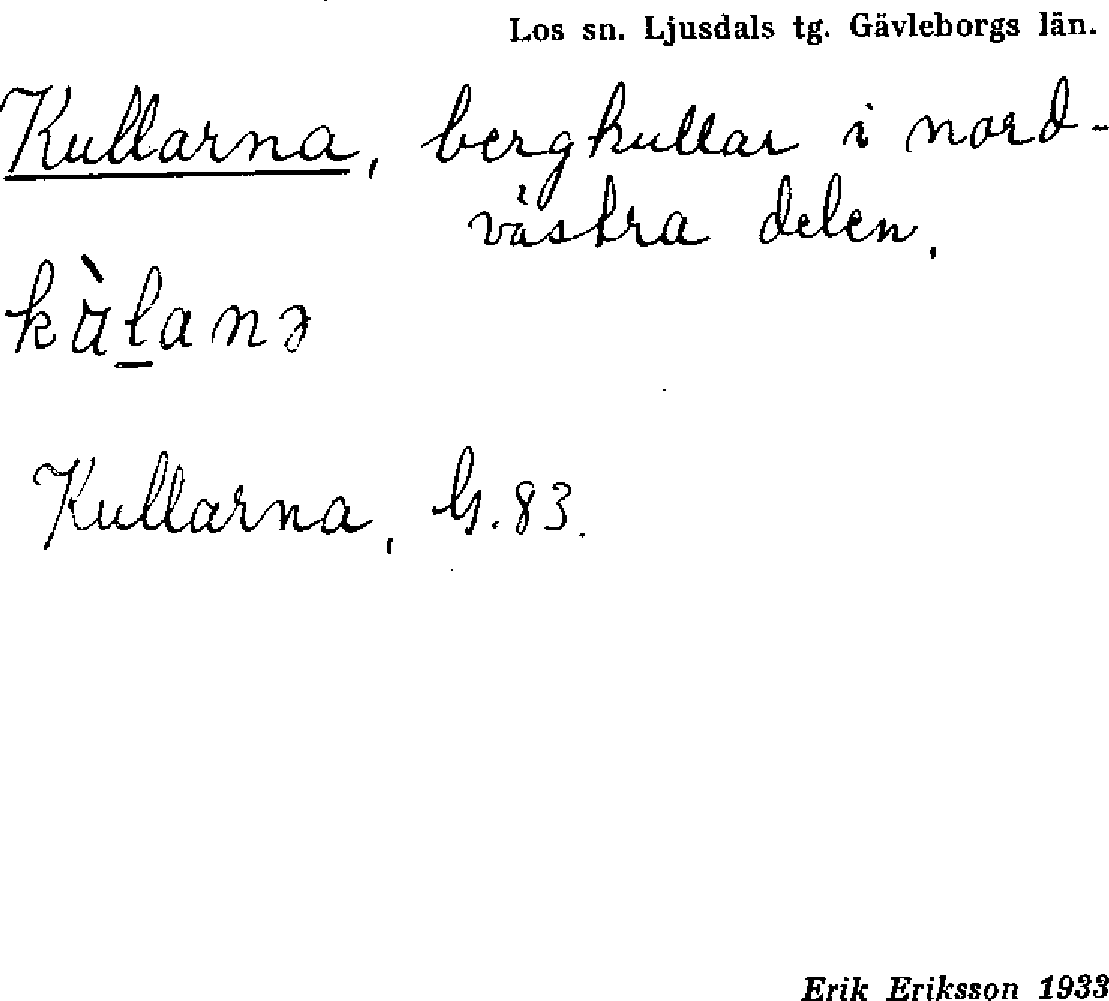 Los sn. Ljusdals tg. Gävleborgs län.
Kullarna, bergkullar i nord-
västra delen.
Kullarna, G. 83.
Erik Eriksson 1933